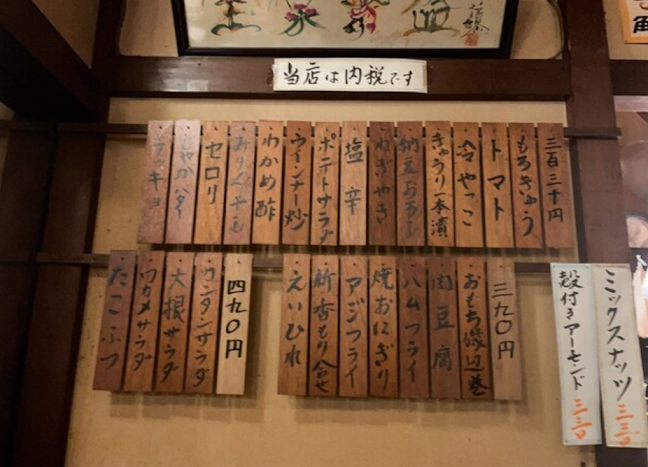 当店は内税です
三百三十円
もろきゅう
トマト
冷やっこ
きゅうり一本漬
納豆おろし
ねぎやき
塩辛
ポテトサラダ
ウインナー炒
わかめ酢
みりん干し
セロリ
じゃがバター
ラッキョ
三九〇円
おもち磯辺巻
肉豆腐
ハムフライ
焼おにぎり
アジフライ
新香もり合せ
えいひれ
四九〇円
カンタンサラダ
大根サラダ
ワカメサラダ
たこぶつ
ミックスナッツ 三三〇
殻付きアーモンド 三三〇